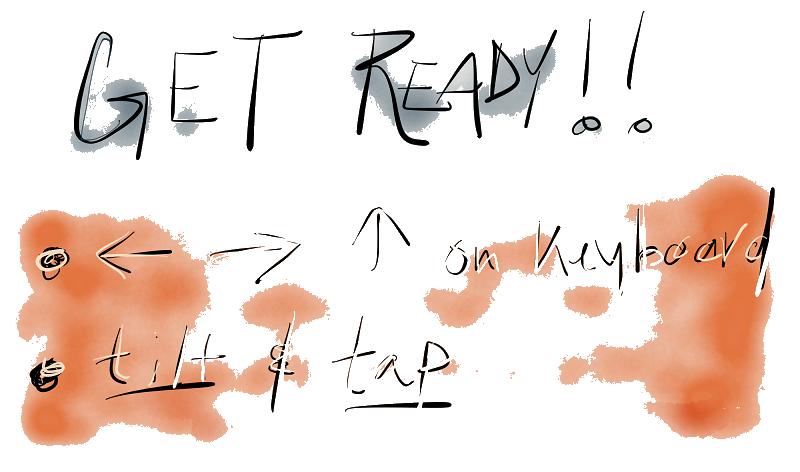 GET READY!!
← → ↑ on keyboard
tilt & tap